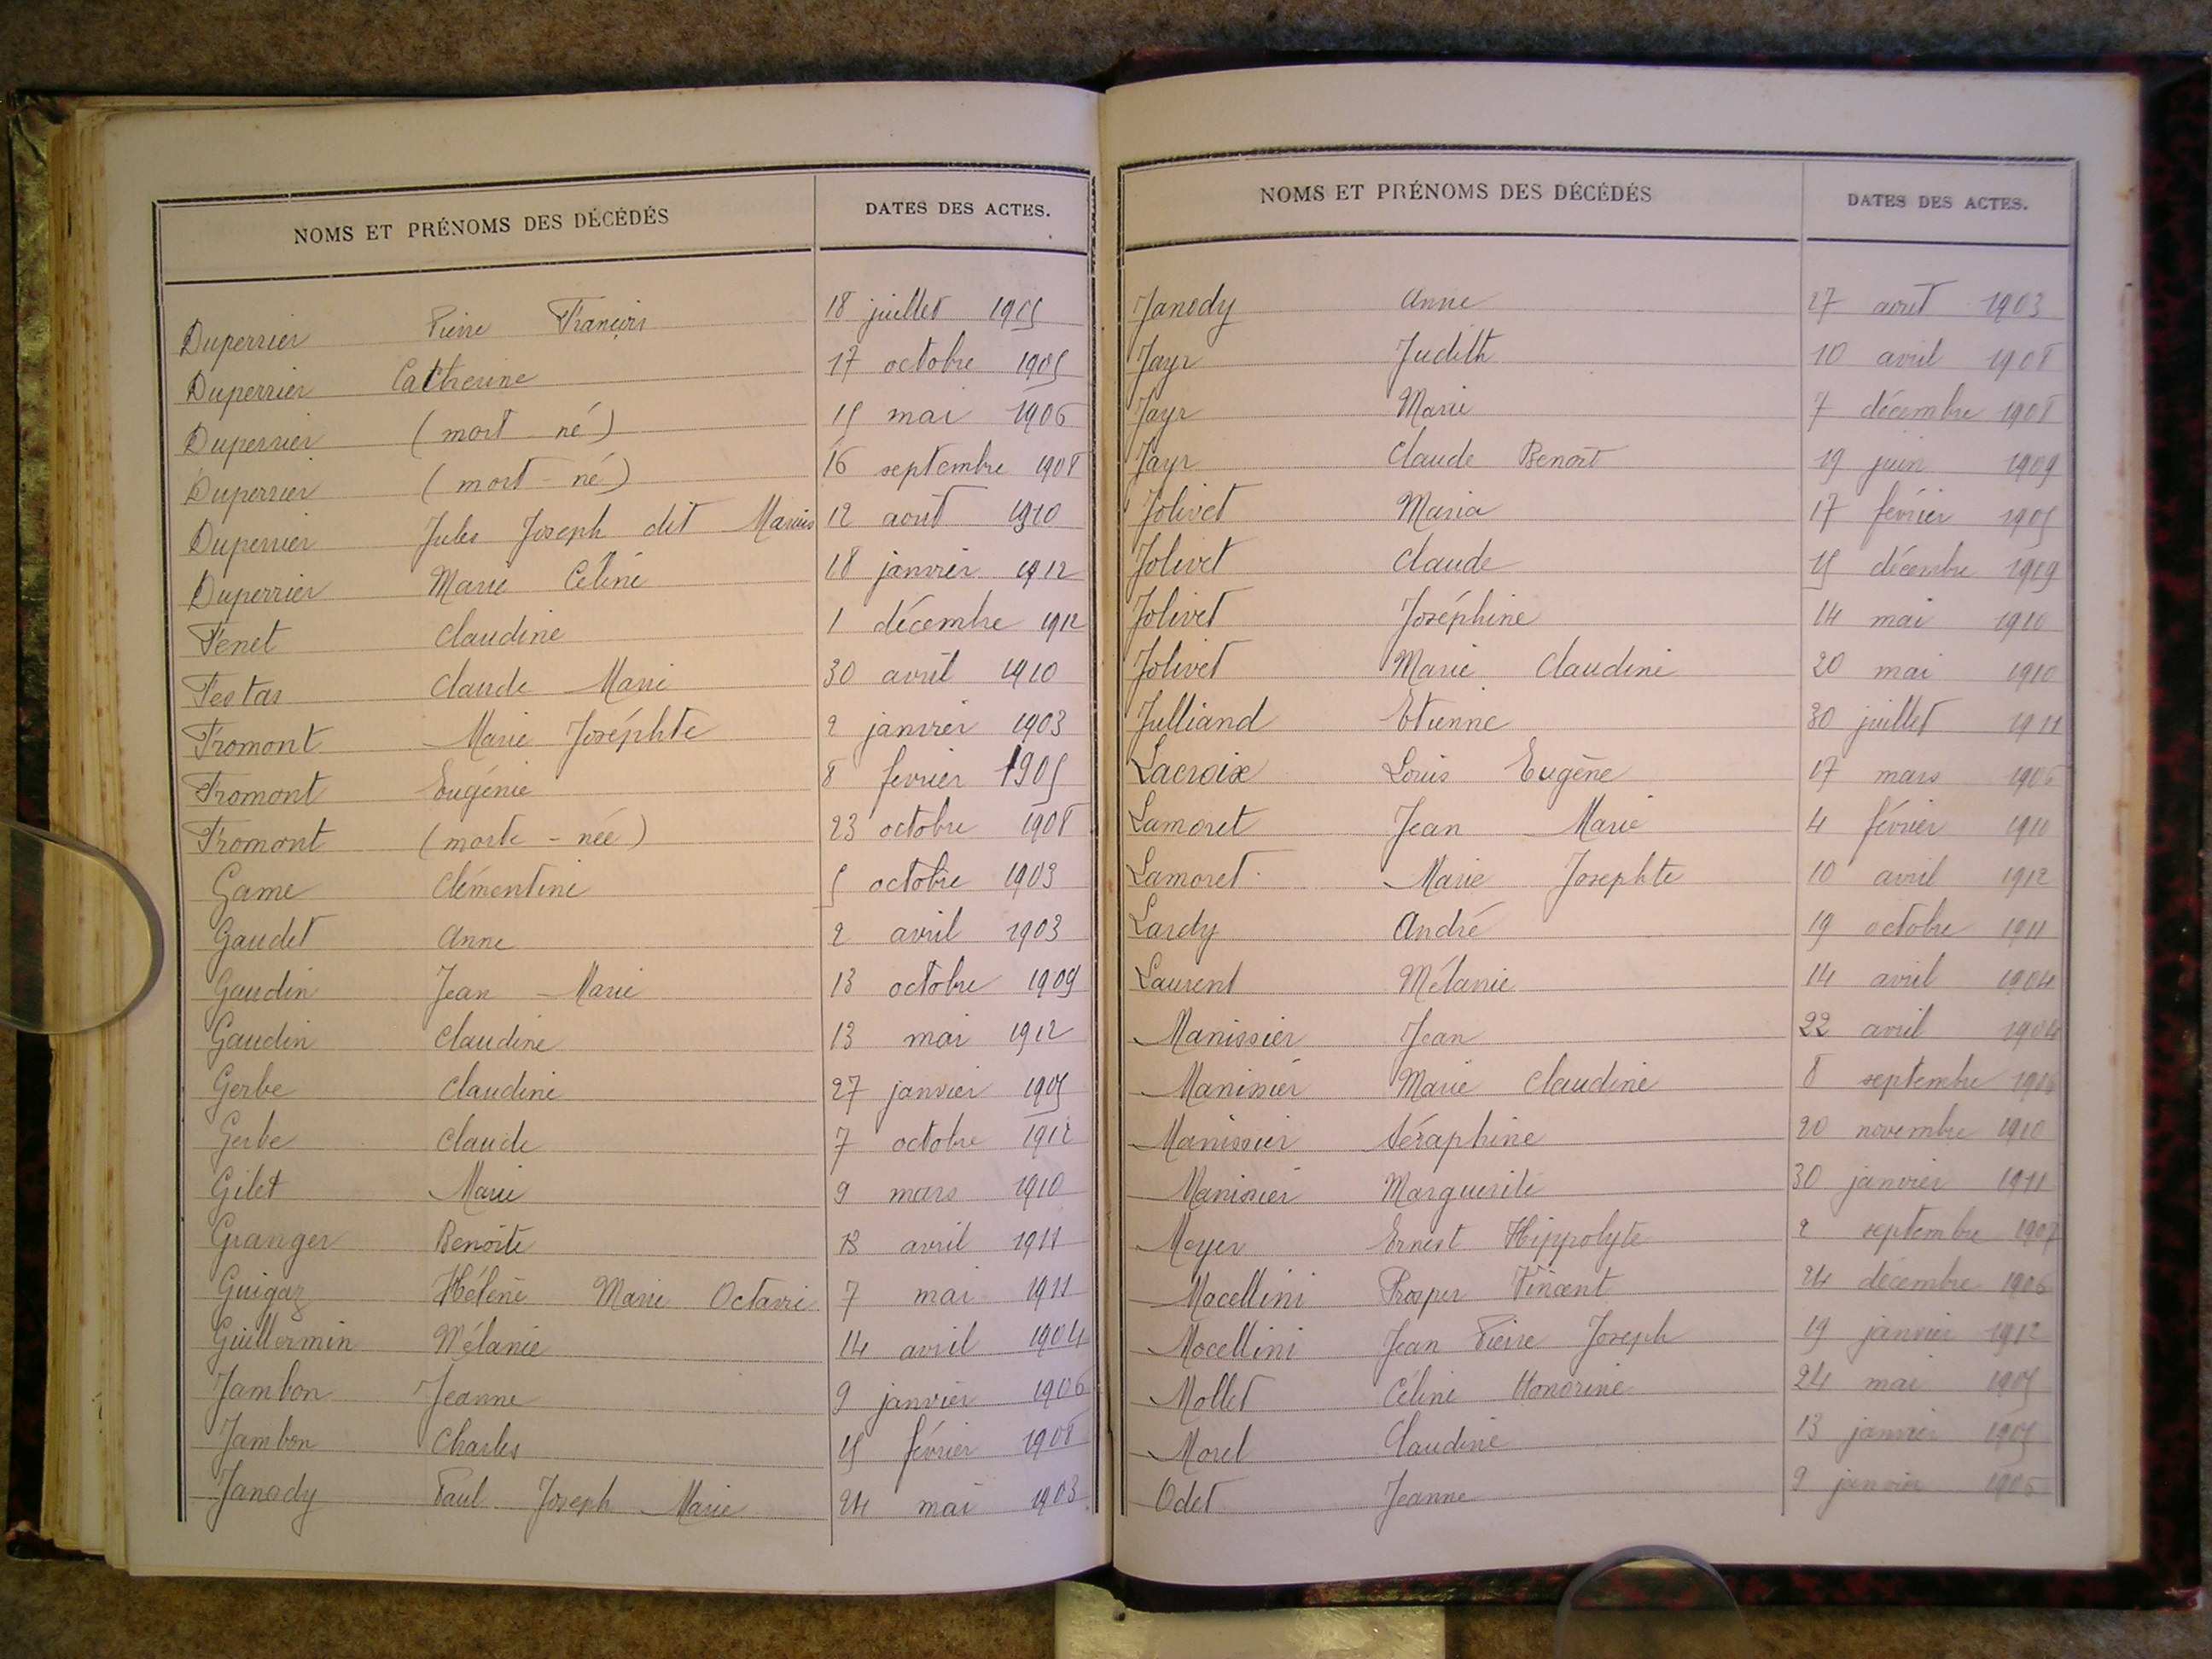 NOMS ET PRÉNOMS DES DÉCÉDÉS DATES DES ACTES.
Duperrier Pierre François 18 juillet 1905
Duperrier Catherine 17 octobre 1905
Duperrier (mort né) 15 mai 1906
Duperrier (mort-né) 16 septembre 1908
Duperrier Jules Joseph dit Marius 12 août 1910
Duperrier Marie Céline 18 janvier 1912
Fenet Claudine 1 décembre 1912
Festas Claude Marie 30 avril 1910
Fromont Marie Joséphte 2 janvier 1903
Fromont Eugénie 8 fevrier 1905
Fromont (morte-née) 23 octobre 1908
Game Clémentine 5 octobre 1903
Gaudet Anne 2 avril 1903
Gaudin Jean-Marie 13 octobre 1909
Gaudin Claudine 13 mai 1912
Gerbe Claudine 27 janvier 1905
Gerbe Claude 7 octobre 1912
Gilet Marie 9 mars 1910
Granger Benoîte 13 avril 1911
Guigaz Hélène Marie Octavie 7 mai 1911
Guillermin Mélanie 14 avril 1904
Jambon Jeanne 9 janvier 1906
Jambon Charles 15 février 1908
Janody Paul Joseph Marie 24 mai 1903
NOMS ET PRÉNOMS DES DÉCÉDÉS DATES DES ACTES.
Janody Anne 27 août 1903
Jayr Judith 10 avril 1908
Jayr Marie 7 décembre 1908
Jayr Claude Benoît 19 juin 1909
Jolivet Maria 17 février 1905
Jolivet Claude 15 décembre 1909
Jolivet Joséphine 14 mai 1910
Jolivet Marie Claudine 20 mai 1910
Julliand Etienne 30 juillet 1911
Lacroix Louis Eugène 17 mars 1906
Lamoret Jean Marie 4 février 1910
Lamoret Marie Josephte 10 avril 1912
Lardy André 19 octobre 1911
Laurent Mélanie 14 avril 1904
Manissier Jean 22 avril 1904
Manissier Marie Claudine 8 septembre 1906
Manissier Séraphine 20 novembre 1910
Manissier Marguerite 30 janvier 1911
Meyer Ernest Hippolyte 2 septembre 1907
Mocellini Prosper Vincent 24 décembre 1906
Mocellini Jean Pierre Joseph 19 janvier 1912
Mollet Céline Honorine 24 mai 1905
Morel Claudine 13 janvier 1905
Odet Jeanne 9 janvier 1906